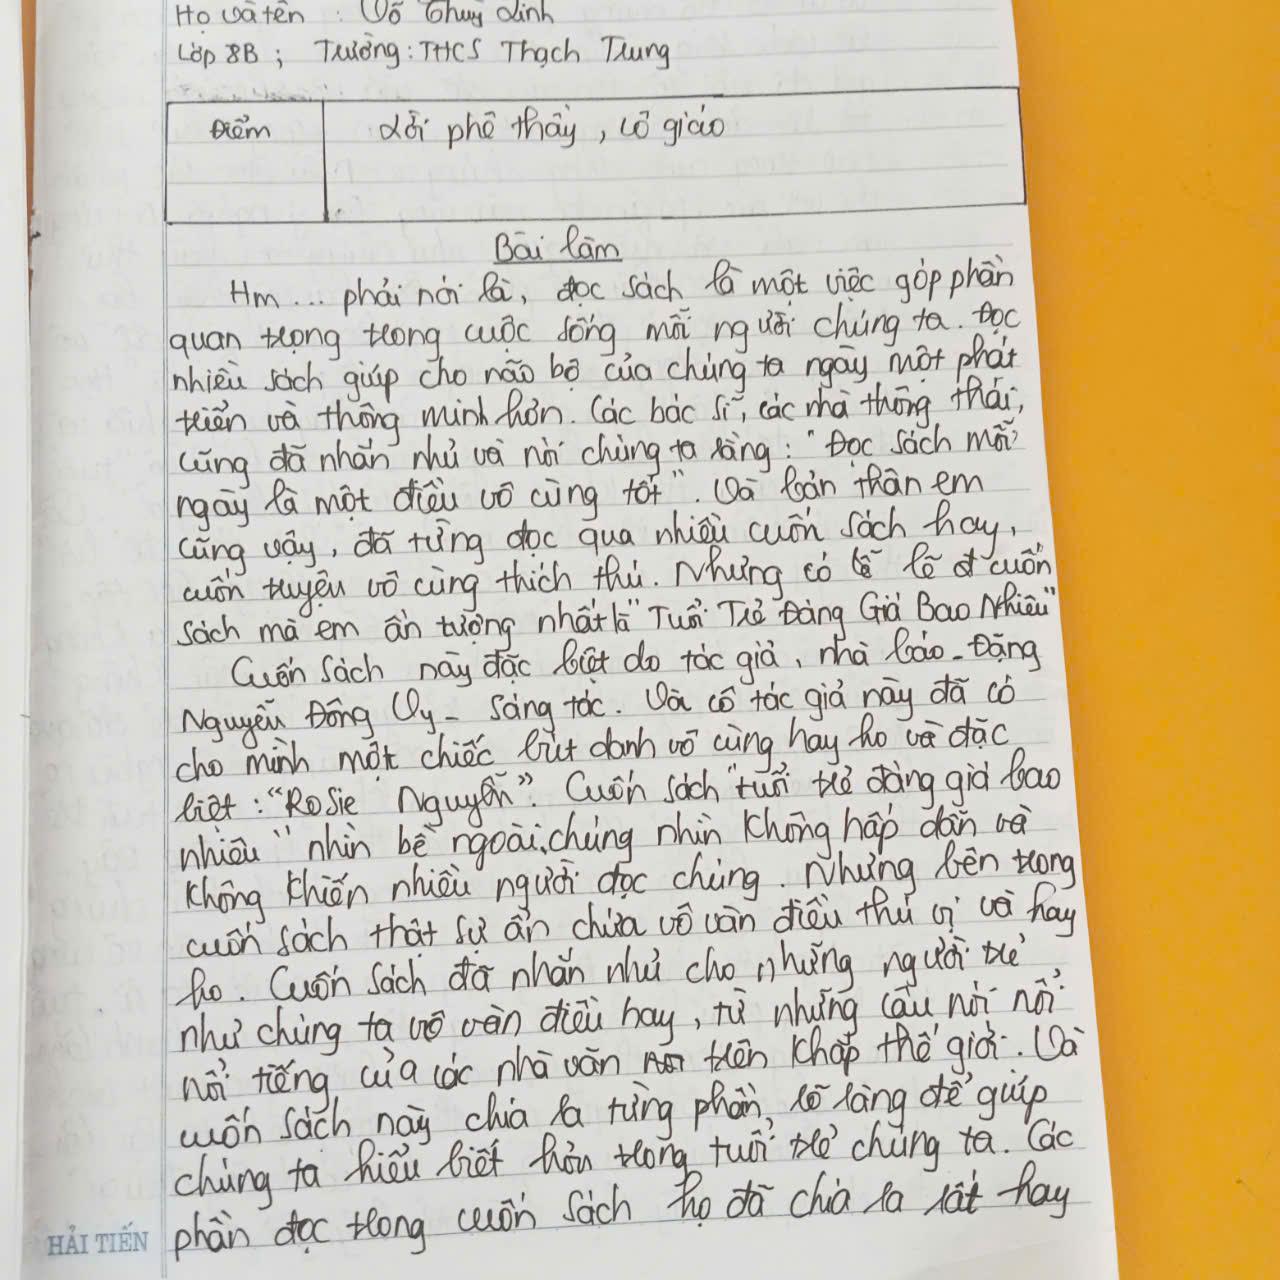 Họ và tên : Võ Thuỳ Linh
Lớp 8B ; Trường : THCS Thạch Trung
Điểm
Lời phê thầy, cô giáo
Bài làm
Hm... phải nói là, đọc sách là một việc góp phần
quan trọng trong cuộc sống mỗi người chúng ta. Đọc
nhiều sách giúp cho não bộ của chúng ta ngày một phát
triển và thông minh hơn. Các bác sĩ, các nhà thông thái,
cũng đã nhắn nhủ và nói chúng ta rằng : "Đọc sách mỗi
ngày là một điều vô cùng tốt". Và bản thân em
cũng vậy, đã từng đọc qua nhiều cuốn sách hay,
cuốn truyện vô cùng thích thú. Nhưng có lẽ cuốn
sách mà em ấn tượng nhất là "Tuổi Trẻ Đáng Giá Bao Nhiêu"
Cuốn sách này đặc biệt do tác giả, nhà báo - Đặng
Nguyễn Đông Vy - sáng tác. Và cô tác giả này đã có
cho mình một chiếc bút danh vô cùng hay ho và đặc
biệt : "Rosie Nguyễn". Cuốn sách "tuổi trẻ đáng giá bao
nhiêu" nhìn bề ngoài, chúng nhìn không hấp dẫn và
không khiến nhiều người đọc chúng. Nhưng bên trong
cuốn sách thật sự ẩn chứa vô vàn điều thú vị và hay
ho. Cuốn sách đã nhắn nhủ cho những người trẻ
như chúng ta vô vàn điều hay, từ những câu nói nổi
nổi tiếng của các nhà văn trên khắp thế giới. Và
cuốn sách này chia ra từng phần rõ ràng để giúp
chúng ta hiểu biết hơn trong tuổi trẻ chúng ta. Các
phần đọc trong cuốn sách họ đã chia ra rất hay
HẢI TIẾN